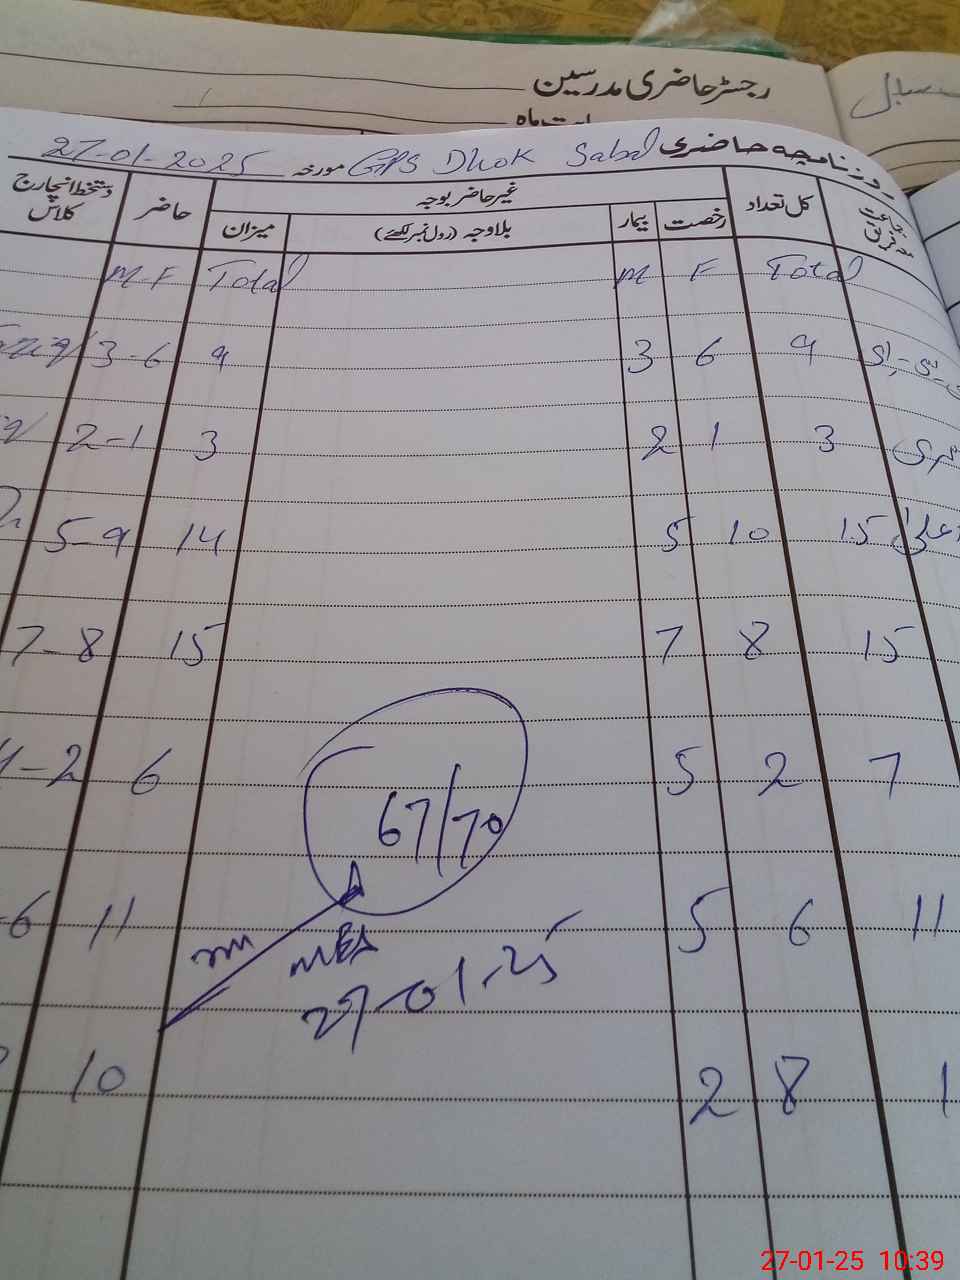 رجسٹر حاضری مدرسین
روزنامچہ حاضری GPS Dhok Sabal مورخہ 27-01-2025
کل تعداد غیر حاضر بوجہ حاضر دستخط انچارج کلاس
رخصت بیمار بلاوجہ (رول نمبر لکھئے) میزان
M-F Total M F Total
3-6 9 3 6 9
2-1 3 2 1 3
5-9 14 5 10 15
7-8 15 7 8 15
-2 6 5 2 7
67/70
-6 11 5 6 11
MEA
27-01-25
10 2 8
27-01-25 10:39